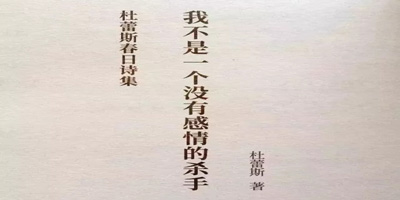 我不是一个没有感情的杀手
杜蕾斯春日诗集
杜蕾斯 著